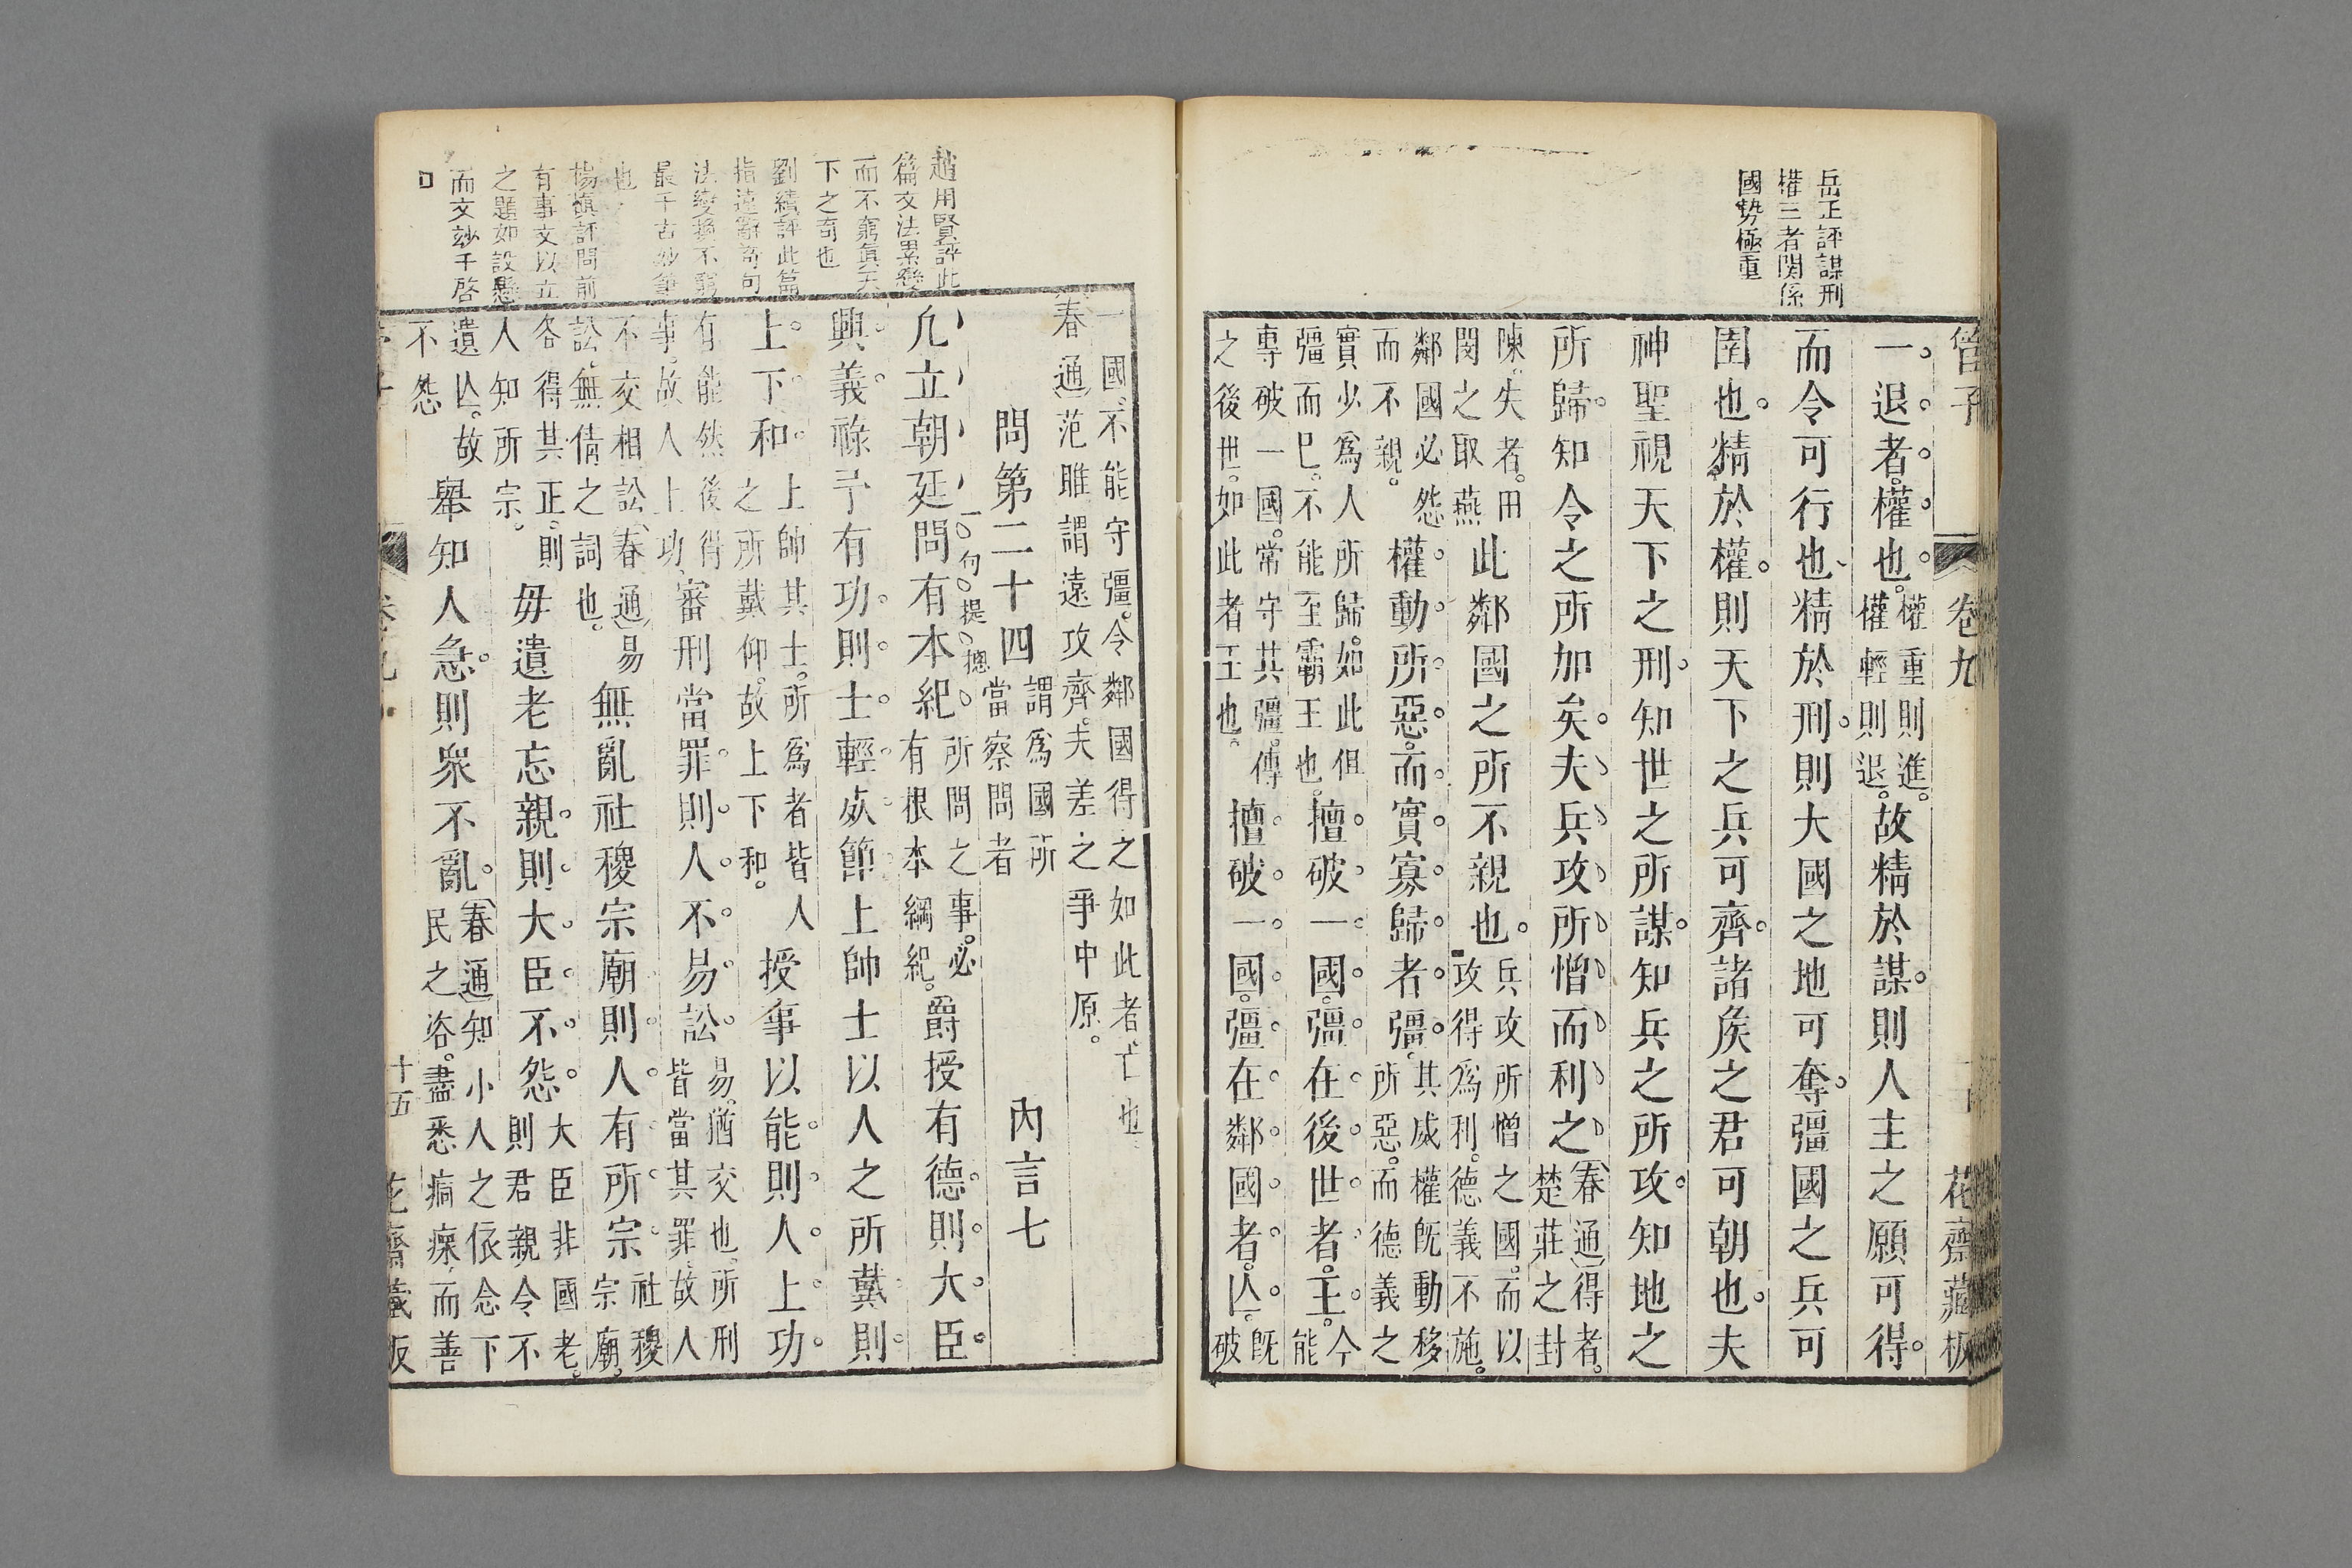 岳正評謀刑
權三者関係
國勢極重
管子
卷九
花齋藏板
一退者權也權重則進。權輕則退。故精於謀則人主之願可得
而令可行也精於刑則大國之地可奪彊國之兵可
圉也精於權則天下之兵可齊諸矦之君可朝也夫
神聖視天下之刑知世之所謀知兵之所攻知地之
所歸知令之所加矣夫兵攻所憎而利之春通得者。楚莊之封
陳。失者。田閔之取燕此鄰國之所不親也兵攻所憎之國。而以攻得爲利。德義不施。
鄰國必怨而不親。權動所惡而實寡歸者彊其威權旣動移所惡。而德義之
實少爲人所歸。如此但彊而巳。不能至霸王也。擅破一國彊在後世者王今能
專破一國。常守其彊。傳之後世。如此者王也。擅破一國彊在鄰國者亾旣破
一國不能守彊。令鄰國得之如此者亡也
春通范雎謂遠攻齊。夫差之爭中原。
問第二十四謂爲國所當察問者內言七
一句提總
凡立朝廷問有本紀所問之事。必有根本綱紀。爵授有德則大臣
興義祿予有功則士輕死節上帥士以人之所戴則
上下和上帥其士。所爲者皆人之所戴仰。故上下和。授事以能則人上功
有能然後得事。故人上功審刑當罪則人不易訟易。猶交也。所刑皆當其罪。故人
不交相訟春通易訟無情之詞也。無亂社稷宗廟則人有所宗社稷宗廟。
各得其正。則人知所宗。毋遺老忘親則大臣不怨大臣非國老。則君親令不
遺亾。故不怨舉知人急則衆不亂春通知小人之依念下民之咨。盡悉痌瘝而善
十五
趙用賢評此
篇文法累變
而不窮真天
下之奇也
劉績評此篇
指遠辭奇句
法變換不窮
最千古妙筆
也
楊慎評問前
有事文以立
之題如設懸
而文玅千啓
口